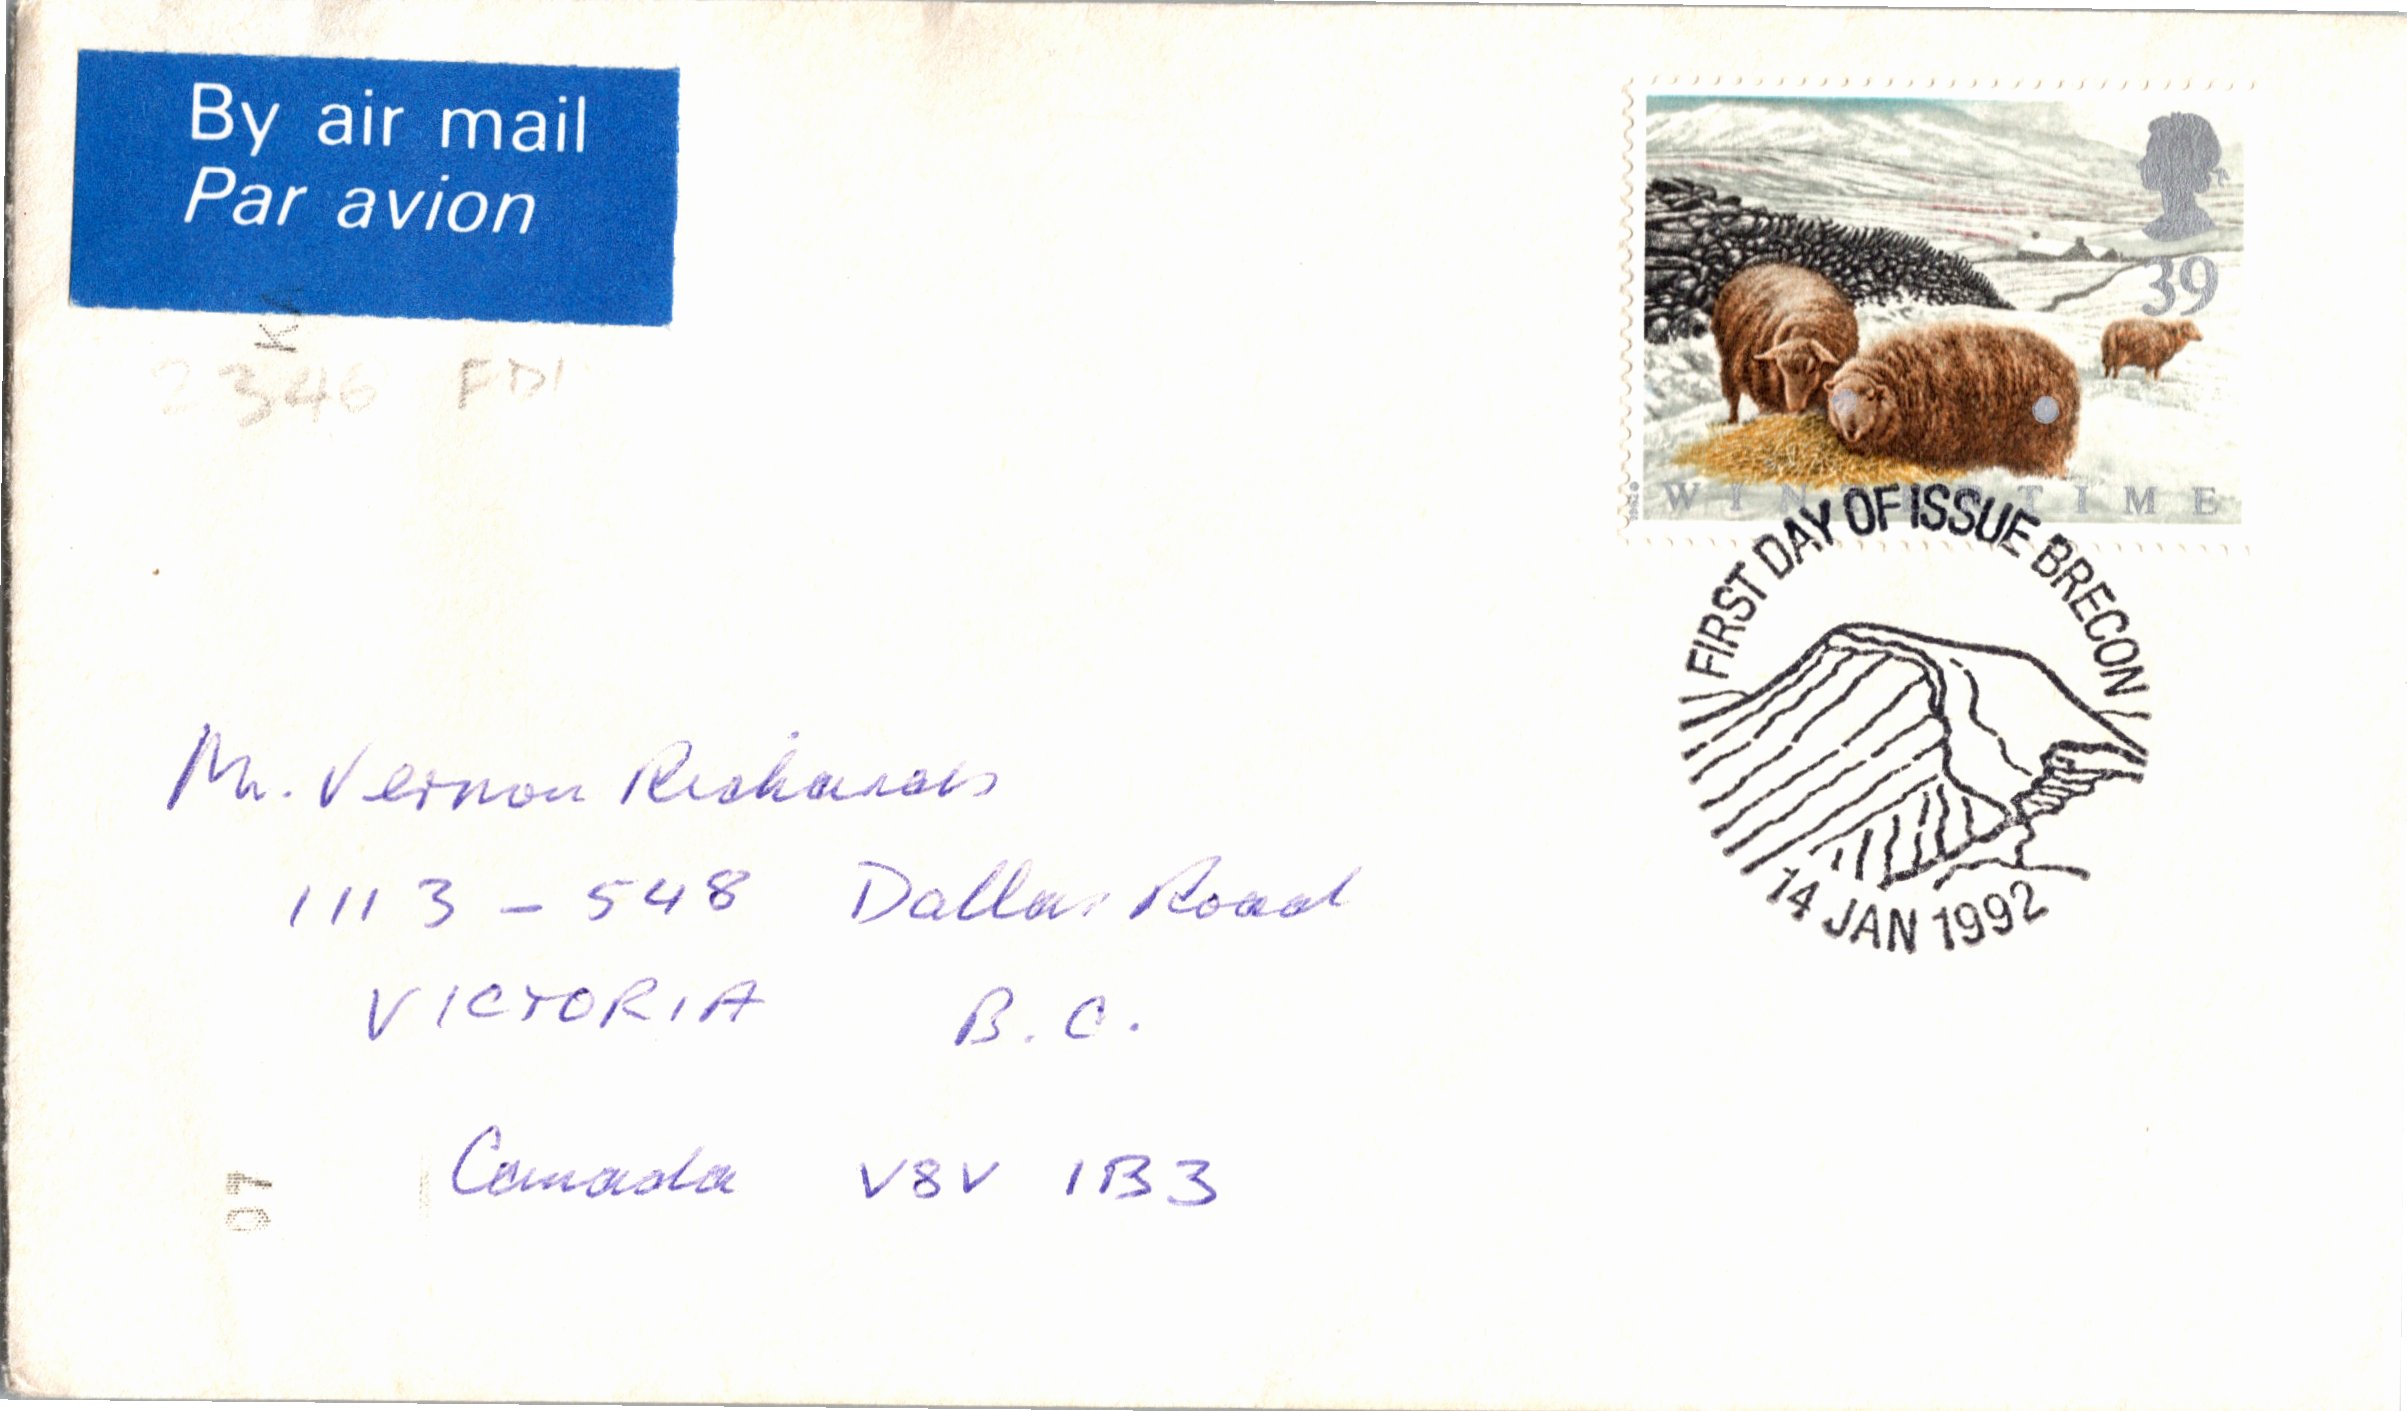 By air mail
Par avion
39
WINTERTIME
2346 FDI
FIRST DAY OF ISSUE BRECON
14 JAN 1992
Mr. Vernon Richards
1113 - 548 Dallas Road
VICTORIA B.C.
Canada V8V 1B3
07